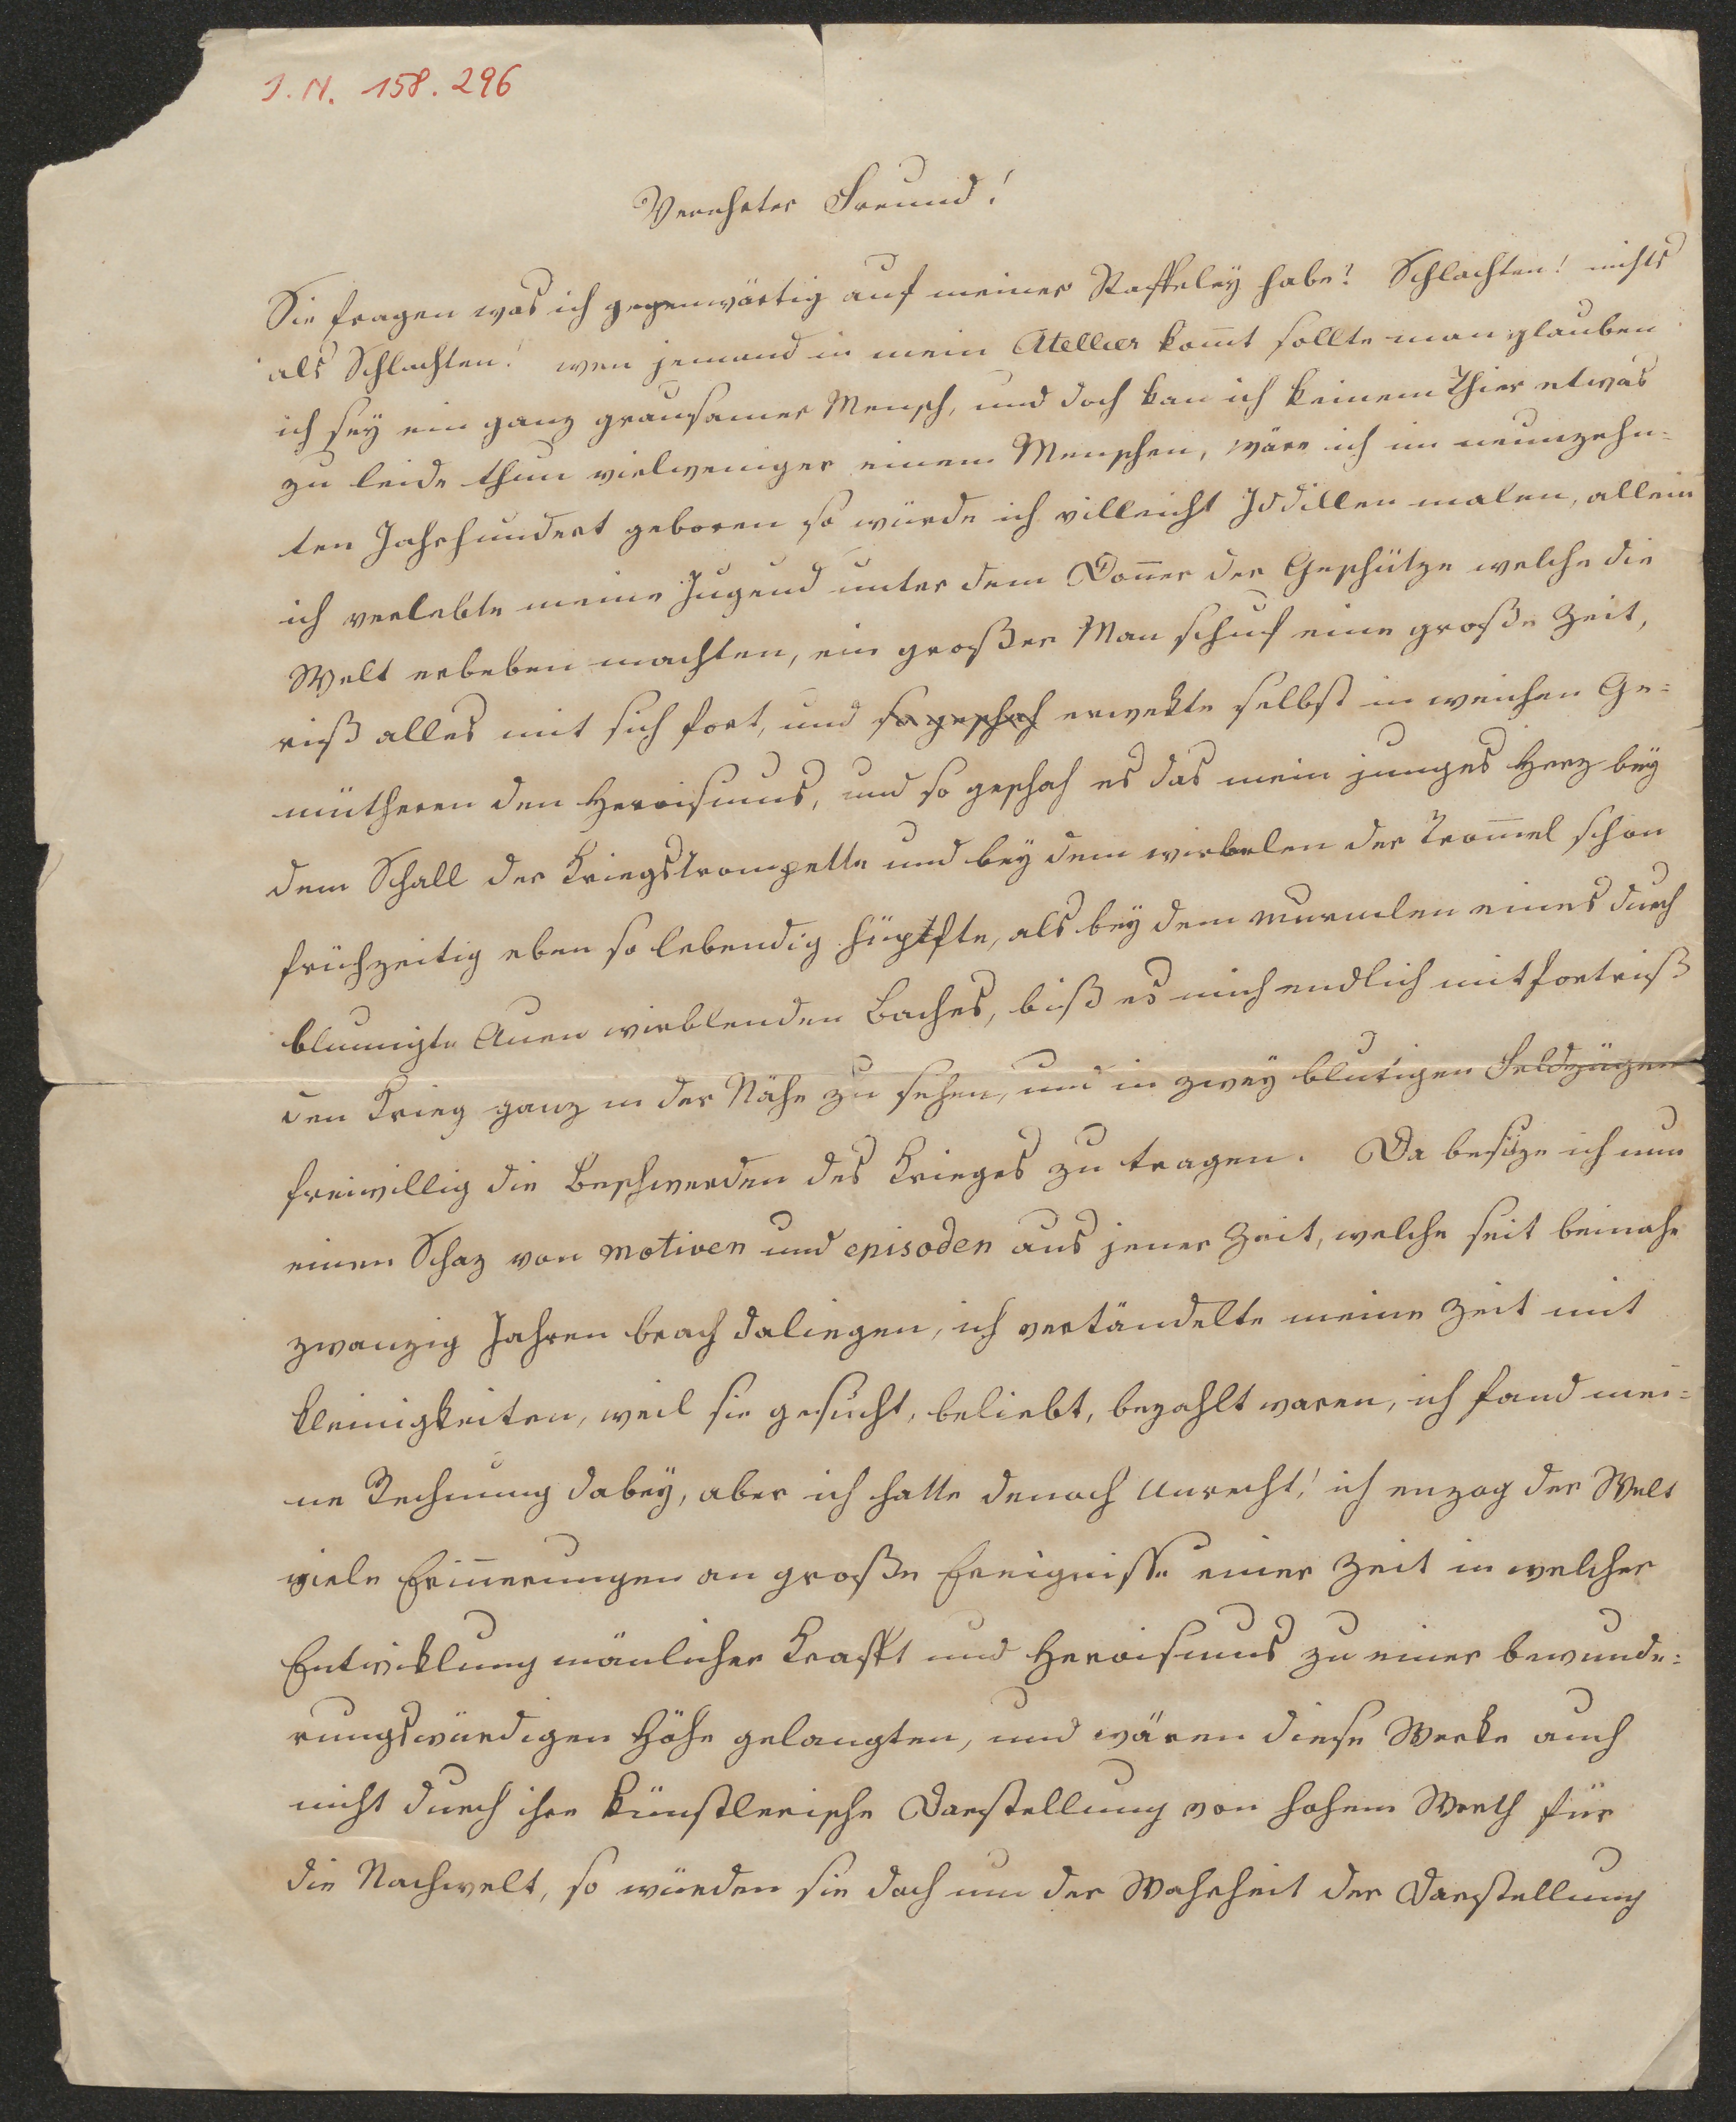 I. N. 158.296
Verehrter Freund!
Sie fragen was ich gegenwärtig auf meiner Staffeley habe? Schlachten! nichts
als Schlachten! wen jemand in mein Atellier kom̄t sollte man glauben
ich sey ein ganz grausamer Mensch, und doch kan ich keinem Thier etwas
zu leide thun vielweniger einem Menschen, wäre ich im neunzehn=
ten Jahrhundert geboren so würde ich villeicht Iddillen malen, allein
ich verlebte meine Jugend unter dem Don̄er der Geschütze welche die
Welt erbeben machten, ein großer Man schuf eine große Zeit,
riß alles mit sich fort, und so geschah erwekte selbst in weichen Ge=
mütheren den Heroismus, und so geschah es das mein junges Herz bey
dem Schall der Kriegstrompette und bey dem wirbelen der Trom̄el schon
frühzeitig eben so lebendig hüpfte, als bey dem murmlen eines durch
blumigte Auen wirblenden Baches, biß es mich endlich mit fortriß
den Krieg ganz in der Nähe zu sehen, und in zwey blutigen Feldzügen
freiwillig die Beschwerden des Krieges zu tragen. Da besize ich nun
einen Schaz von motiven und episoden aus jener Zeit, welche seit beinahe
zwanzig Jahren brach daliegen, ich vertändelte meine Zeit mit
Kleinigkeiten, weil sie gesucht, beliebt, bezahlt waren, ich fand mei=
ne Rechnung dabey, aber ich hatte denoch Unrecht! ich enzog der Welt
viele Erin̄erungen an große Ereignisse einer Zeit in welcher
Entwiklung mänlicher Krafft und Heroismus zu einer bewunde=
rungswürdigen Höhe gelangten, und wären diese Werke auch
nicht durch ihre künstlerische Darstellung von hohem Werth für
die Nachwelt, so würden sie doch um der Wahrheit der Darstellung